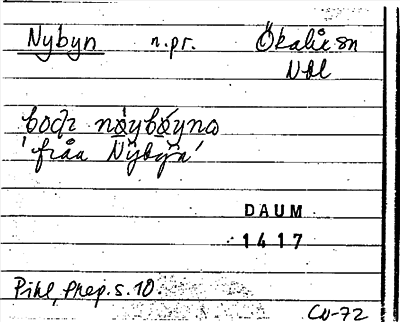 Nybyn n.pr. Ökalix sn
Nbl
från Nybyn'
DAUM
1417
Pihl, Prep. s. 10.
CN-72